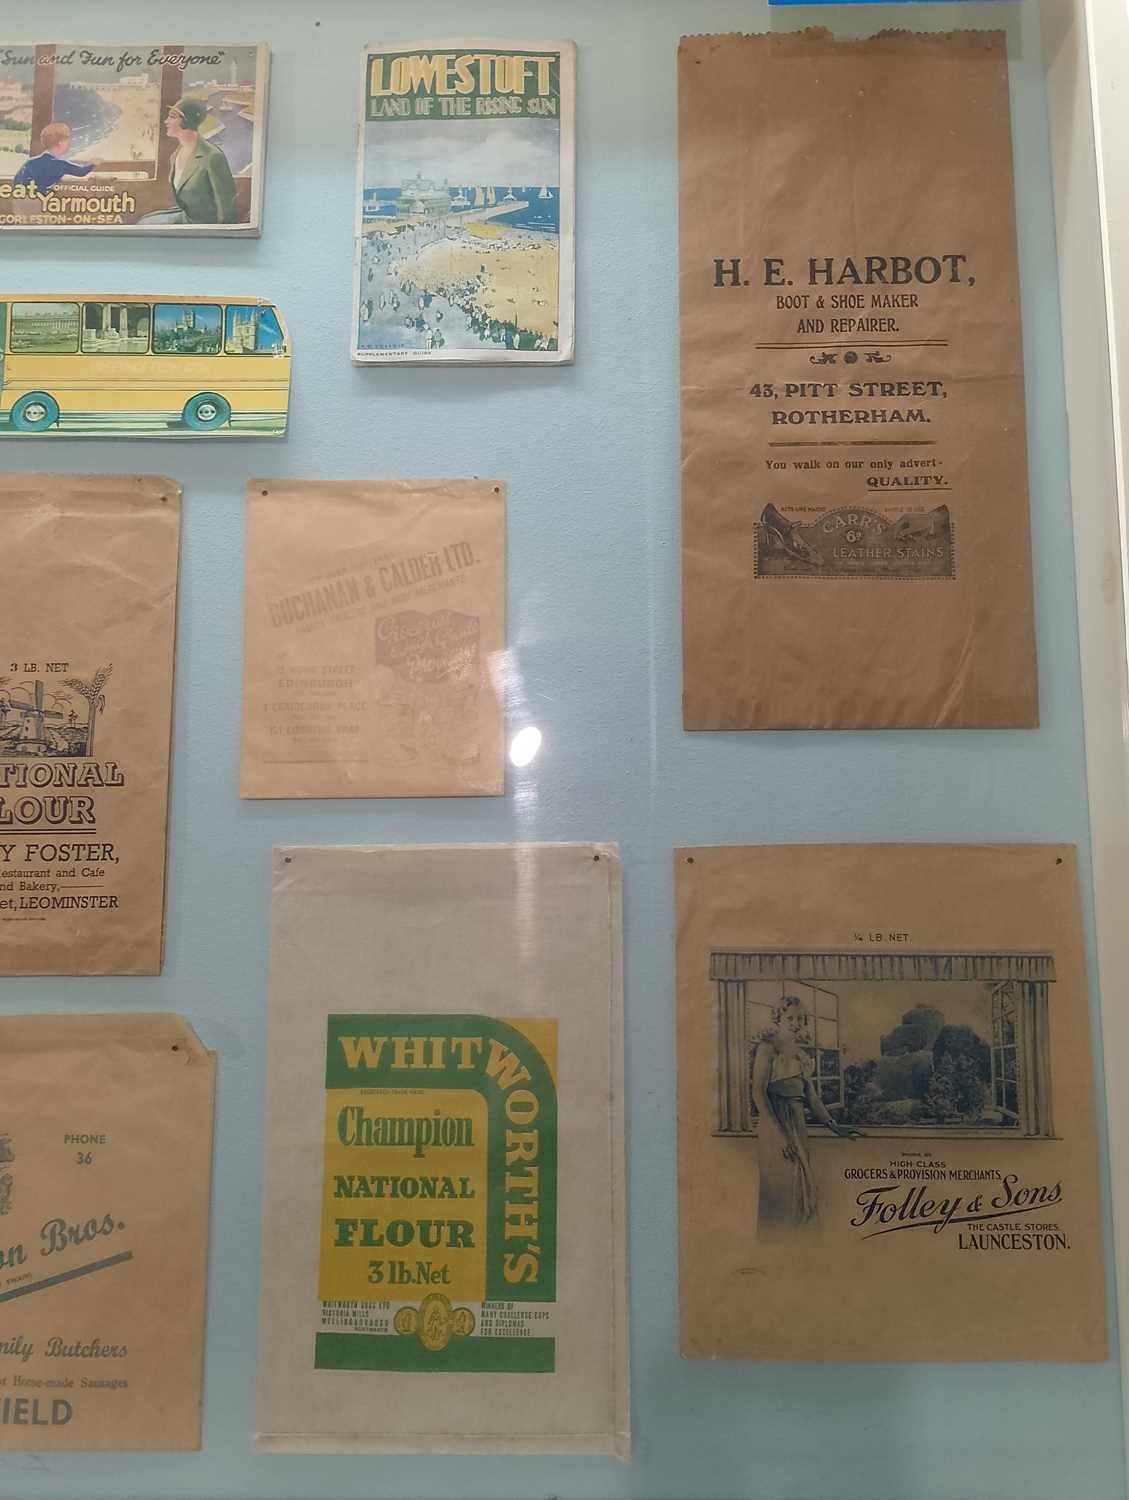 "Sun and Fun for Everyone"
OFFICIAL GUIDE
eat Yarmouth
GORLESTON-ON-SEA
LOWESTOFT
LAND OF THE RISING SUN
SUPPLEMENTARY GUIDE
H. E. HARBOT,
BOOT & SHOE MAKER
AND REPAIRER.
43, PITT STREET,
ROTHERHAM.
You walk on our only advert-
QUALITY.
ACTS LIKE MAGIC
SIMPLE TO USE
CARR'S
6D
LEATHER STAINS
BUCHANAN & CALDER LTD.
Groceries
& High Grade
Provisions
EDINBURGH
3 LB. NET
TIONAL
LOUR
Y FOSTER,
estaurant and Cafe
nd Bakery,
et, LEOMINSTER
PHONE
36
on Bros.
mily Butchers
Home-made Sausages
IELD
WHITWORTH'S
REGISTERED TRADE MARK
Champion
NATIONAL
FLOUR
3 lb. Net
WHITWORTH BROS LTD
VICTORIA MILLS
WELLINGBOROUGH
NORTHANTS
WINNERS OF
MANY CHALLENGE CUPS
AND DIPLOMAS
FOR EXCELLENCE
¼ LB. NET.
HIGH CLASS
GROCERS & PROVISION MERCHANTS,
Folley & Sons,
THE CASTLE STORES,
LAUNCESTON.